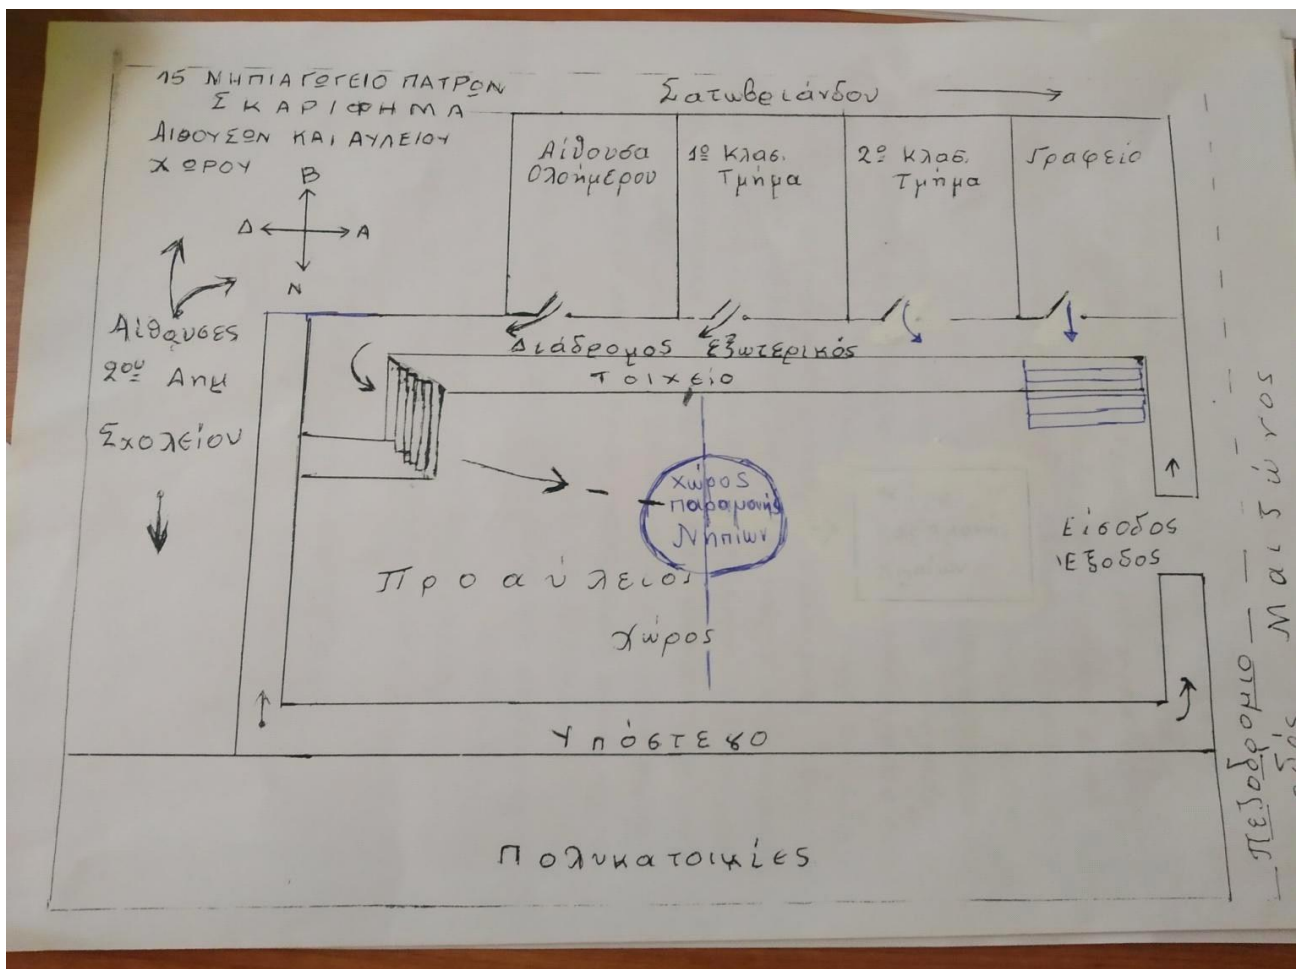 15 ΝΗΠΙΑΓΩΓΕΙΟ ΠΑΤΡΩΝ
ΣΚΑΡΙΦΗΜΑ
ΑΙΘΟΥΣΩΝ ΚΑΙ ΑΥΛΕΙΟΥ
ΧΩΡΟΥ
Σατωβριάνδου
Β
Δ Α
Ν
Αίθουσα
Ολοήμερου
1º Κλασ.
Τμήμα
2º Κλασ.
Τμήμα
Γραφείο
Αίθουσες
2ου Δημ
Σχολείου
Διάδρομος εξωτερικός
Τοιχείο
Χώρος
παραμονής
Νηπίων
Είσοδος
Έξοδος
Προαύλειος
Χώρος
Υπόστεγο
Πολυκατοικίες
Πεζοδρομιο
Μαιζώνος